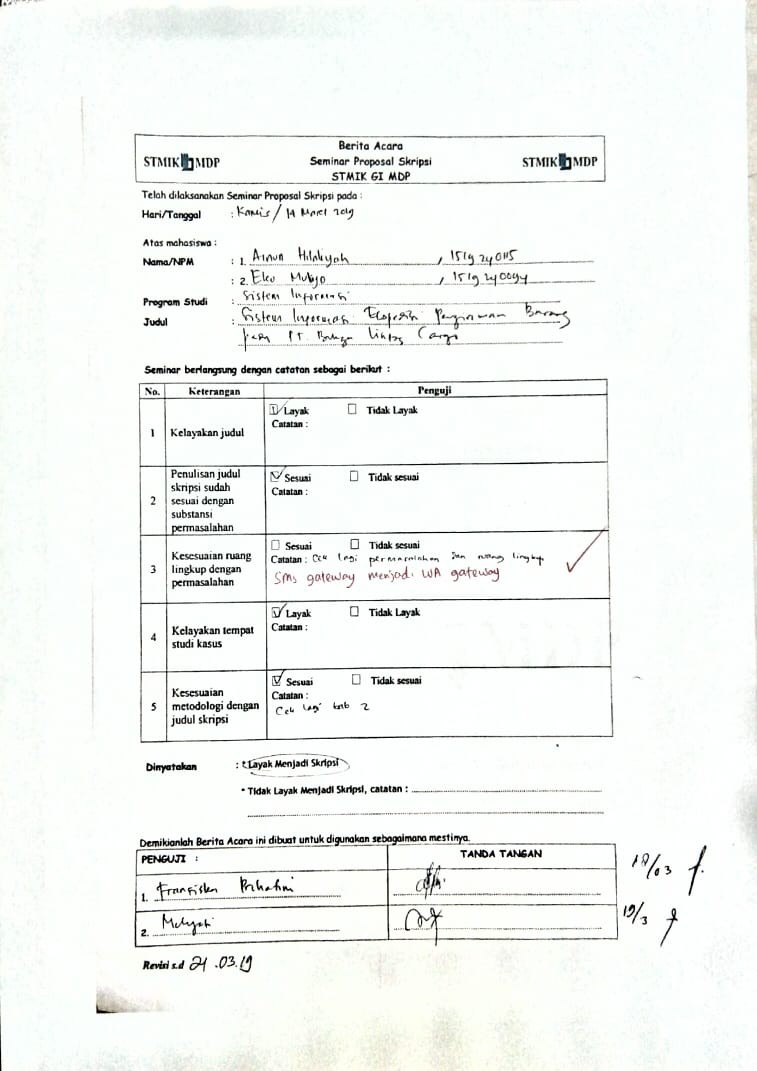 STMIK MDP
Berita Acara
Seminar Proposal Skripsi
STMIK GI MDP
STMIK MDP
Telah dilaksanakan Seminar Proposal Skripsi pada :
Hari/Tanggal : Kamis / 14 Maret 2019
Atas mahasiswa :
Nama/NPM : 1. Ainun , 1519240115
: 2. Eko , 1519240094
Program Studi : Sistem Informasi
Judul : Sistem Informasi Ekspedisi Pengiriman Barang
Pada PT. Lintas Cargo
Seminar berlangsung dengan catatan sebagai berikut :
No. Keterangan Penguji
1 Kelayakan judul
Layak Tidak Layak
Catatan :
2 Penulisan judul
skripsi sudah
sesuai dengan
substansi
permasalahan
Sesuai Tidak sesuai
Catatan :
3 Kesesuaian ruang
lingkup dengan
permasalahan
Sesuai Tidak sesuai
Catatan : Cek lagi permasalahan dan ruang lingkup
SMS gateway menjadi WA gateway
4 Kelayakan tempat
studi kasus
Layak Tidak Layak
Catatan :
5 Kesesuaian
metodologi dengan
judul skripsi
Sesuai Tidak sesuai
Catatan :
Cek lagi bab 2
Dinyatakan : * Layak Menjadi Skripsi
* Tidak Layak Menjadi Skripsi, catatan :
Demikianlah Berita Acara ini dibuat untuk digunakan sebagaimana mestinya.
PENGUJI : TANDA TANGAN
1. Fransiska Prihatini
2. Mulyati
19/3
Revisi s.d 21.03.19